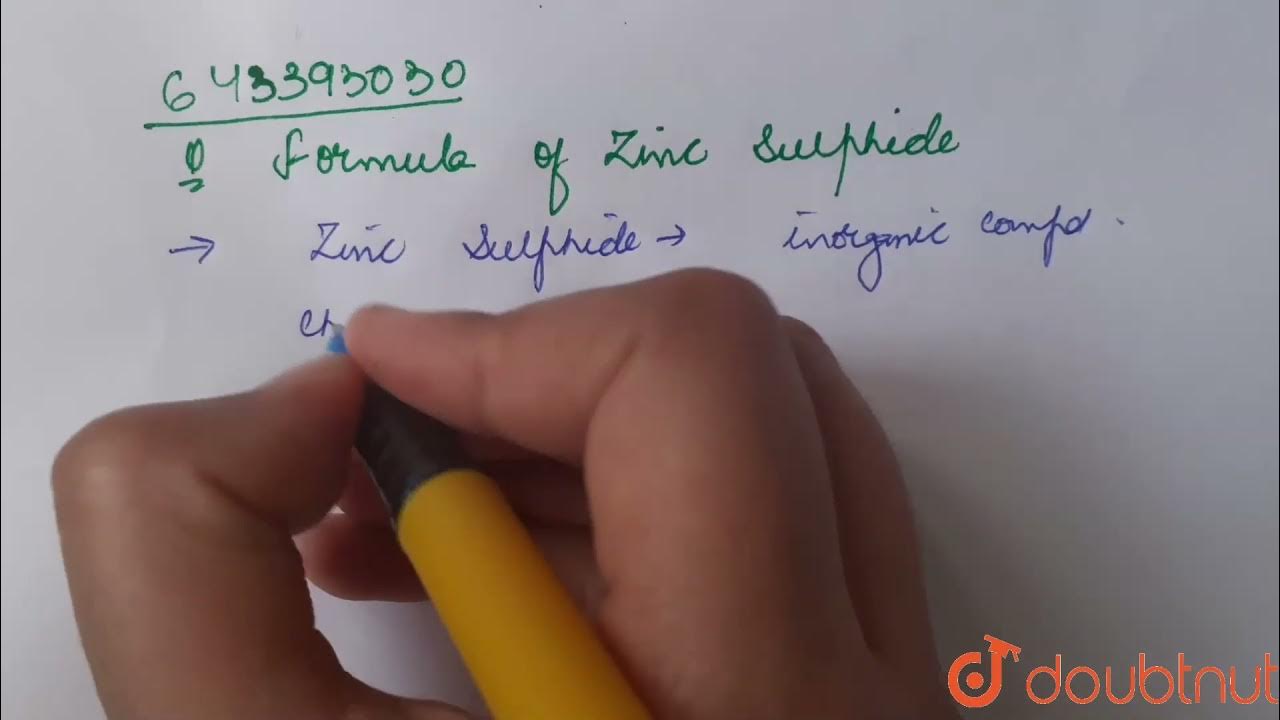 643393030
Q Formula of Zinc Sulphide
→ Zinc Sulphide → inorganic compd.
Ch
doubtnut